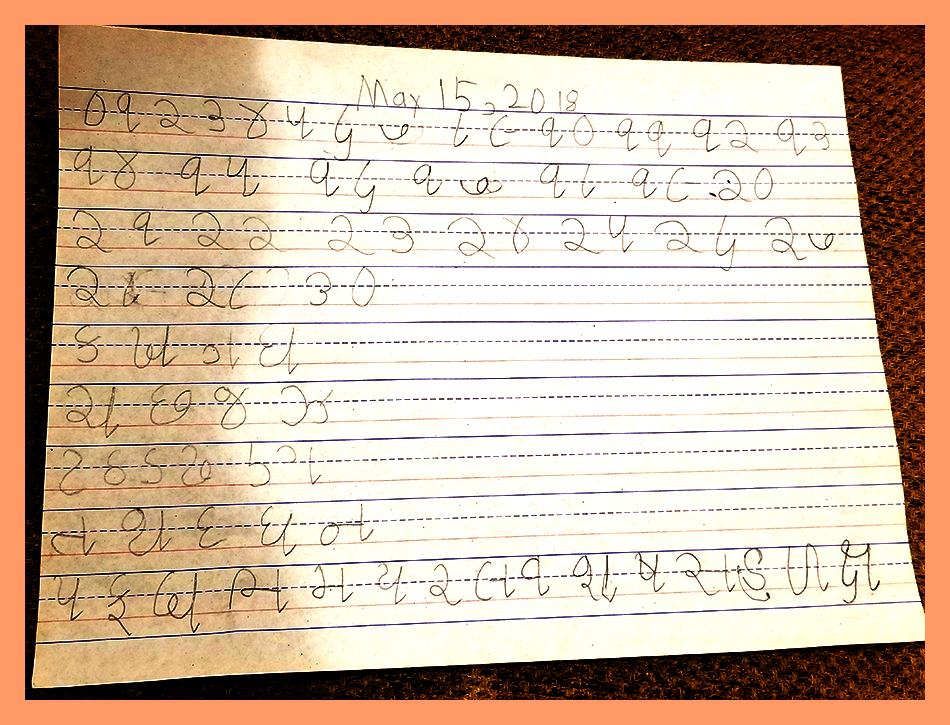 May 15, 2018
૦ ૧ ૨ ૩ ૪ ૫ ૬ ૭ ૮ ૯ ૧૦ ૧૧ ૧૨ ૧૩
૧૪ ૧૫ ૧૬ ૧૭ ૧૮ ૧૯ ૨૦
૨૧ ૨૨ ૨૩ ૨૪ ૨૫ ૨૬ ૨૭
૨૮ ૨૯ ૩૦
ક ખ ગ ઘ
ચ છ જ ઝ
ટ ઠ ડ ઢ ણ
ત થ દ ધ ન
પ ફ બ ભ મ ય ર લ વ શ ષ સ હ ળ ક્ષ